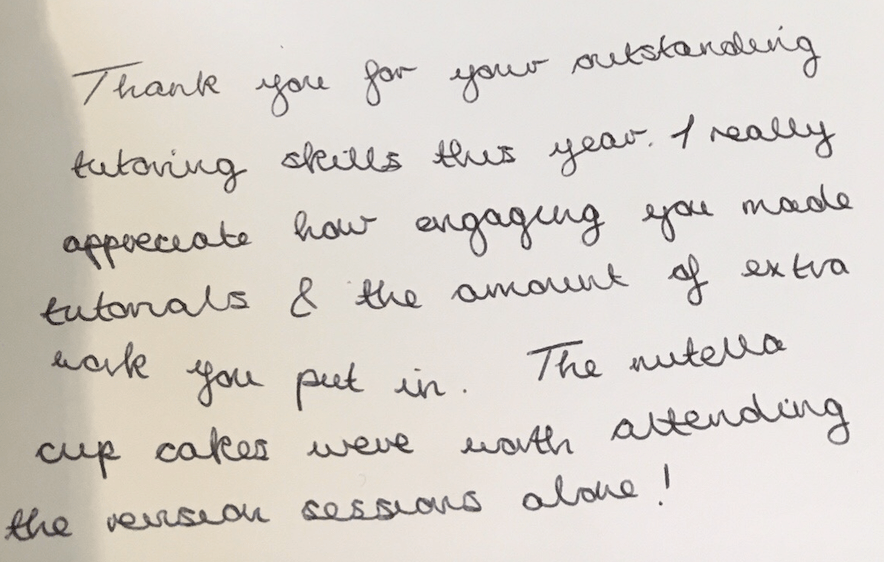 Thank you for your outstanding
tutoring skills this year. I really
appreciate how engaging you made
tutorials & the amount of extra
work you put in. The nutella
cup cakes were worth attending
the revision sessions alone!